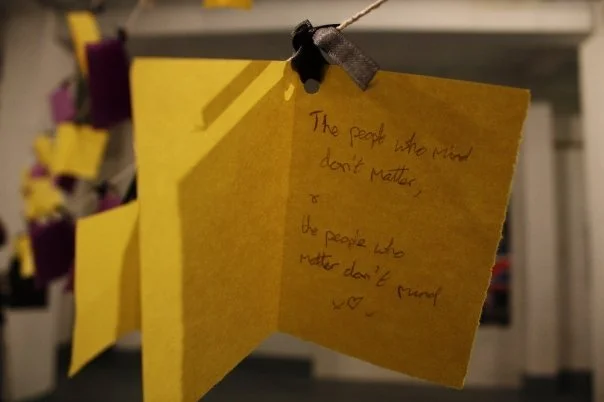 The people who mind
don't matter,
&
the people who
matter don't mind
x♡x